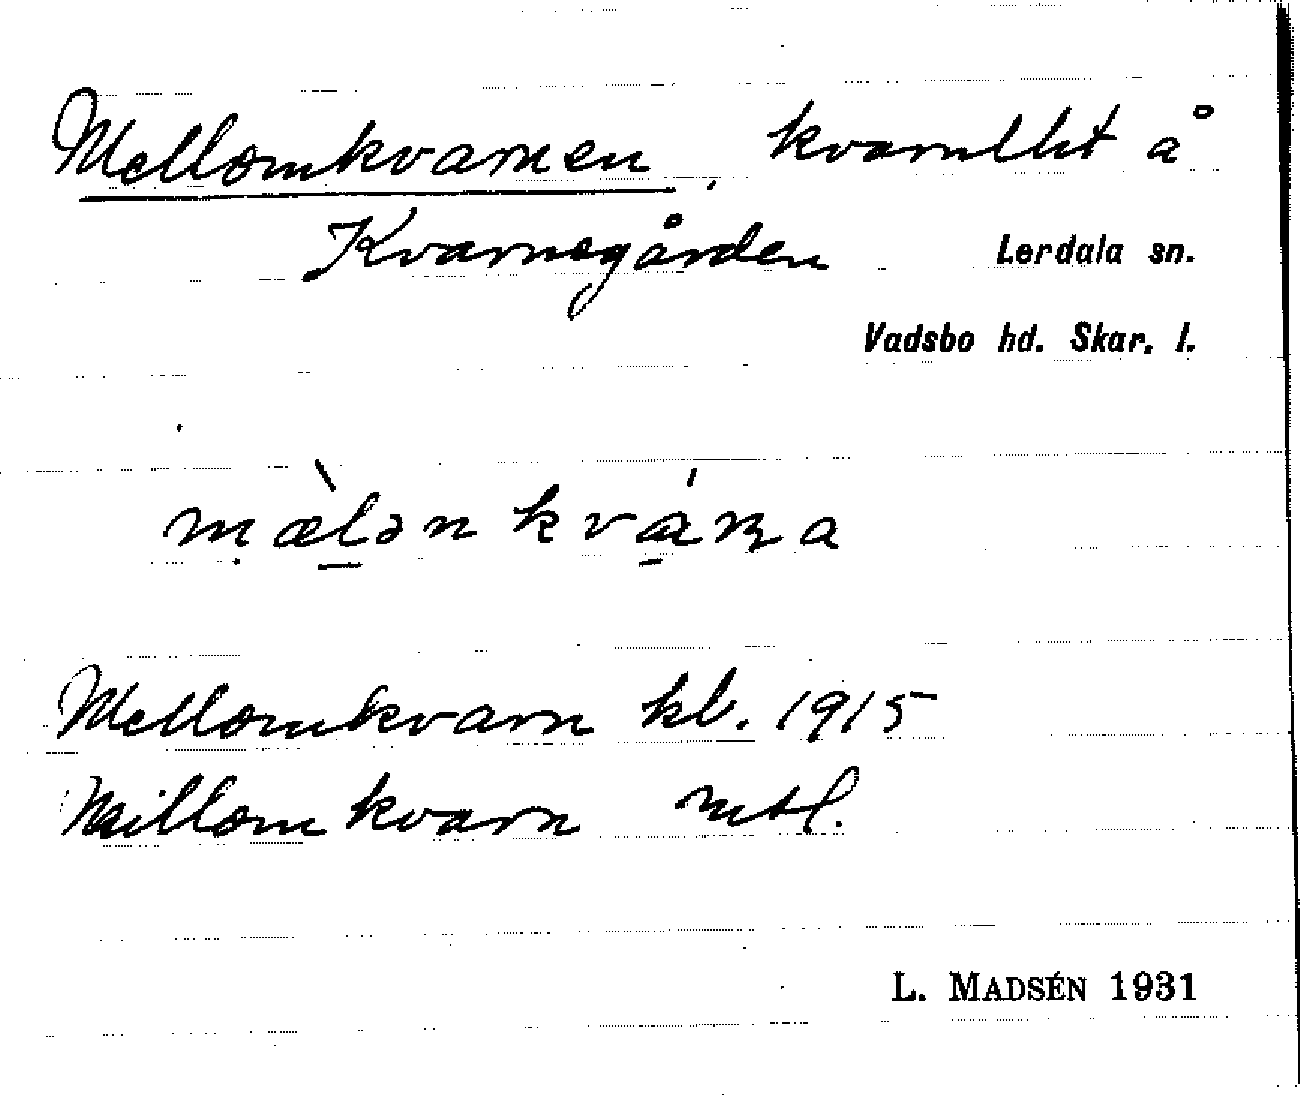 Mellomkvarnen, kvarnlht å
Kvarnegården Lerdala sn.
Vadsbo hd. Skar. l.
Mellomkvarn kl. 1915
Millom kvarn mtl.
L. MADSÉN 1931